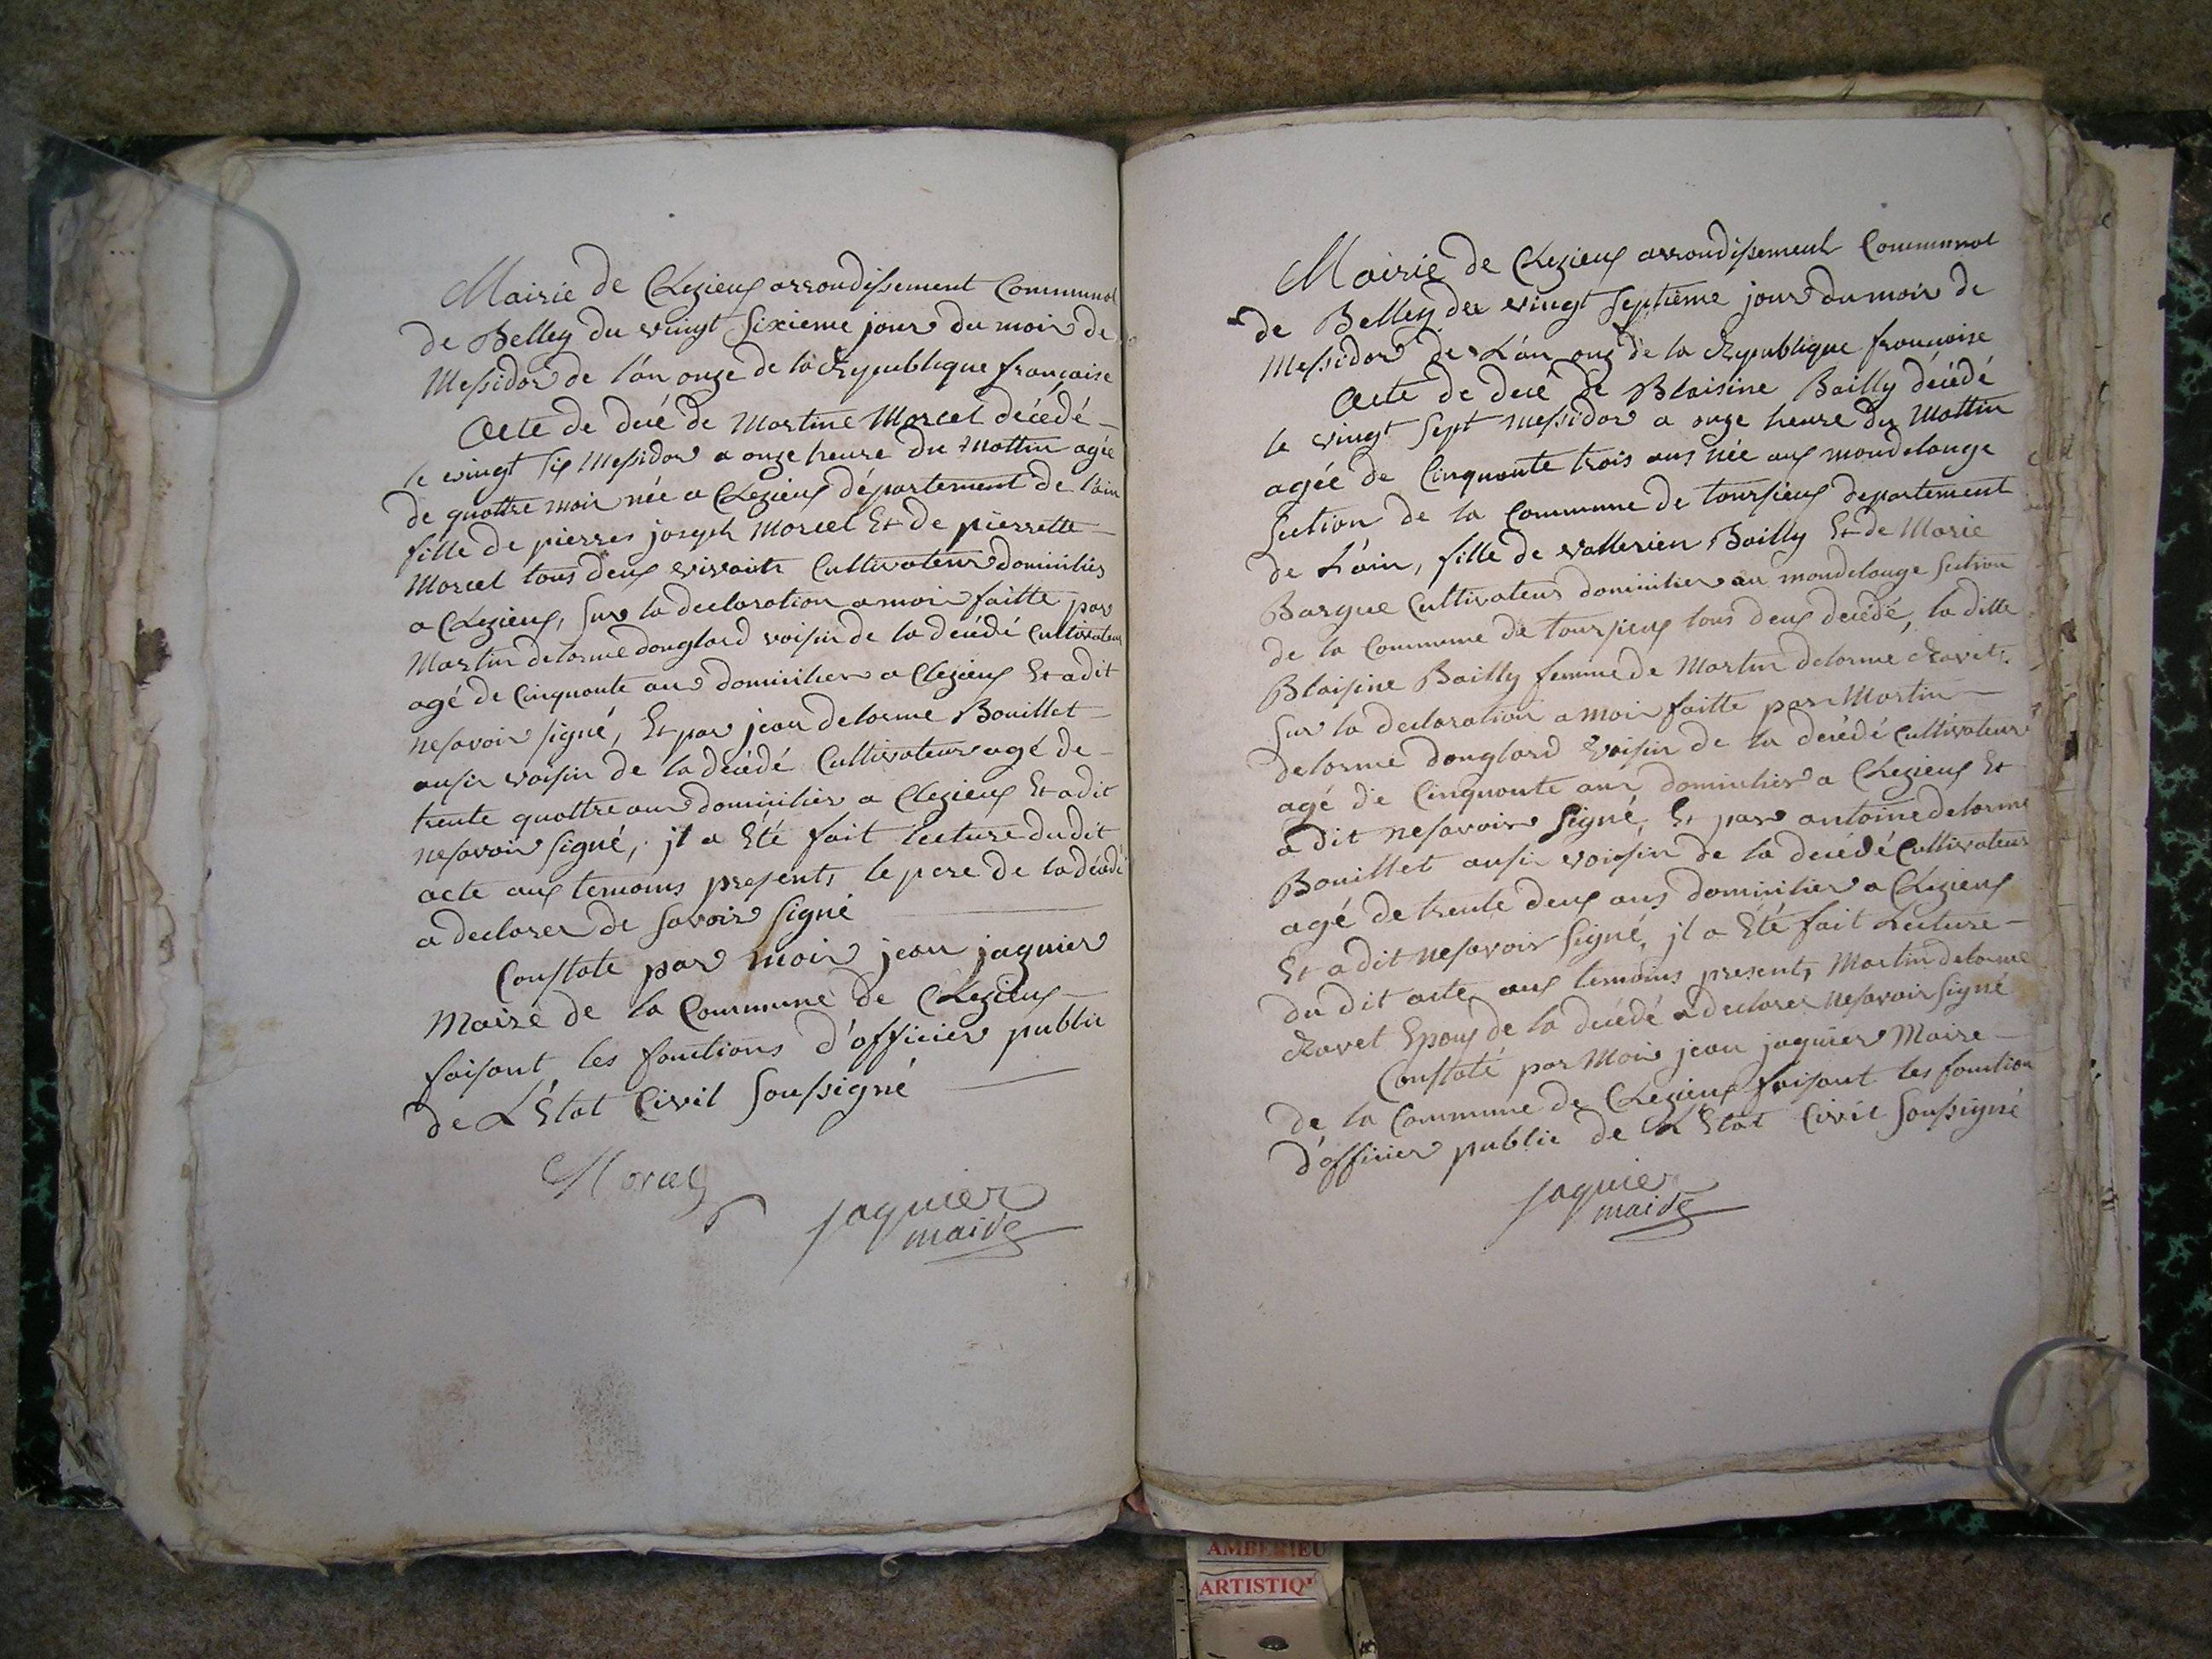 Mairie de Chezieux arrondissement Communal
de Belley du vingt sixieme jour du mois de
Messidor de l'an onze de la Republique francaise
Acte de decé de Martine Morcel décédé
le vingt six Messidor a onze heure du Mattin agée
de quattre mois née a Chezieux département de l'ain
fille de pierres joseph Morcel Et de pierrette
Morcel tous deux vivants Cultivateur dominiliés
a Chezieux, sur la declaration a moi faitte par
Martin delorme donglard voisin de la décédé Cultivateur
agé de Cinquante ans dominilier a Chezieux Et a dit
ne savoir signé, Et par jean delorme Bouillet
aussi voisin de la décédé Cultivateur agé de
trente quattre ans dominilier a Chezieux Et a dit
ne savoir signé, jl a Eté fait lecture du dit
acte aux temoins presents le pere de la décédé
a declarer de savoir signé
Constaté par moi jean jaquier
Maire de la Commune de Chezieux
faisant les fonctions d'officier public
de L'Etat Civil soussigné
Morcel
jaquier
maire
Mairie de Chezieux arrondissement Communal
de Belley du vingt septieme jour du mois de
Messidor de L'an onze de la Republique francoise
Acte de decé de Blaisine Bailly décédé
le vingt sept messidor a onze heure du Mattin
agée de Cinquante trois ans née aux mondelange
section de la Commune de toursieux departement
de L'ain, fille de vallerien Bailly Et de Marie
Barque Cultivateur dominilier au mondelange section
de la Commune de toursieux tous deux décédé, la ditte
Blaisine Bailly femme de Martin delorme Ravet
sur la declaration a moi faitte par Martin
delorme donglard voisin de la décédé Cultivateur
agé de Cinquante ans dominilier a Chezieux Et
a dit ne savoir signé, Et par antoine delorme
Bouillet aussi voisin de la décédé Cultivateur
agé de trente deux ans dominilier a Chezieux
Et a dit ne savoir signé, jl a Eté fait Lecture
du dit acte aux temoins presents, Martin delorme
Ravet Epoux de la décédé a declarer ne savoir signé
Constaté par Moi jean jaquier Maire
de la Commune de Chezieux faisant les fonction
d'officier public de L'Etat Civil soussigné
jaquier
maire
AMBERIEU
ARTISTIQ